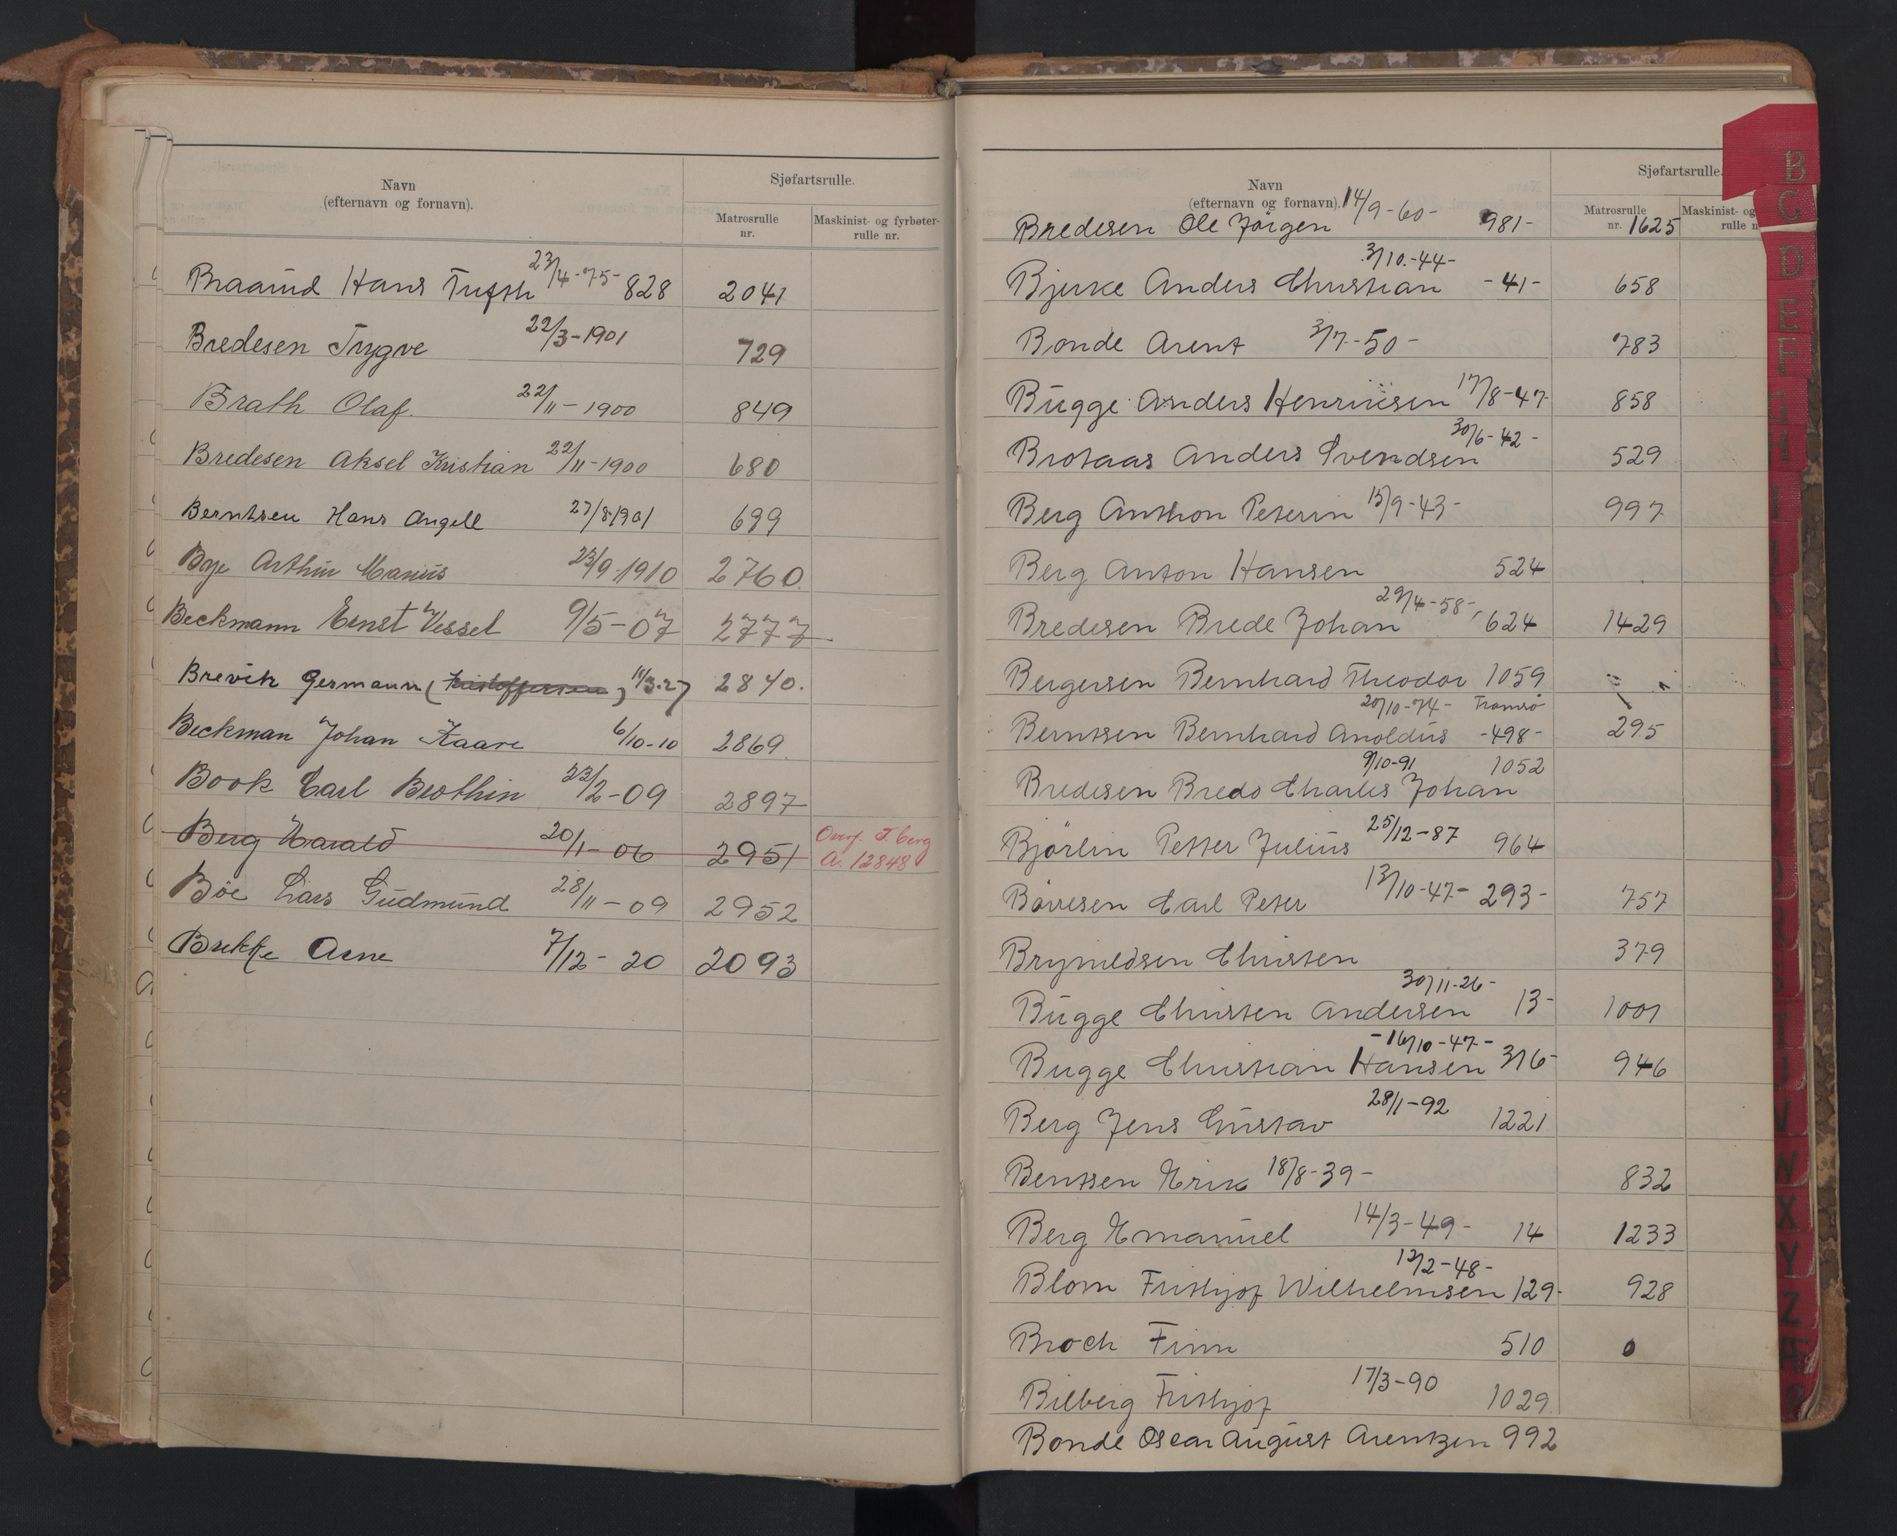 Navn
(efternavn og fornavn).
Sjøfartsrulle.
Matrosrulle nr.
Maskinist- og fyrbøter-rulle nr.
Braarud Hans 23/4-75- 828 2041
Bredesen Trygve 22/3-1901 729
Brath Olaf 22/11-1900 849
Bredesen Aksel Kristian 22/11-1900 680
Berntsen Hans Angell 27/8-1901 699
Bye Arthur Marius 23/9-1910 2760
Beckmann Ernst Wessel 9/5-07 2777
Brevik Germann (Kristoffersen) 11/3-27 2840.
Beckman Johan Kaare 6/10-10 2869.
Book Carl 23/2-09 2897
Berg Harald 20/1-06 2951 Overf. T. berg
A. 12848
Böe Lars Gudmund 28/11-09 2952
Brekke Arne 7/12-20 2093
Navn
(efternavn og fornavn).
Sjøfartsrulle.
Matrosrulle nr.
Maskinist- og
rulle n
Bredesen Ole Jörgen 14/9-60- 981- 1625
Bjerke Anders Christian 3/10-44- -41- 658
Bonde Arent 3/7-50- 783
Bugge Anders Henriksen 17/8-47- 858
Brotaas Anders Svendsen 30/6-42- 529
Berg Anthon Peterin 15/9-43- 997
Berg Anton Hansen 524
Bredesen Brede Johan 29/4-58- 624 1429
Bergersen Bernhard Theodor 1059
Berntsen Bernhard Anoldus 20/10-74- Tromsø -498- 295
Bredesen Bredo Charles Johan 9/10-91 1052
Björlin Petter Julius 25/12-87 964
Börresen Carl Peter 13/10-47- 293- 757
Brynildsen Christen 379
Bugge Christen Andersen 30/11-26- 13- 1001
Bugge Christian Hansen -16/10-47- 316- 946
Berg Jens Gustav 28/1-92 1221
Bentsen Erik 18/8-39- 832
Berg Emanuel 14/3-49- 14 1233
Blom Frithjof Wilhelmsen 12/2-48- 129- 928
Broch Finn 510 0
Bilberg Frithjof 17/3-90 1029
Bonde Oscar August Arentzen 992
B
C
D
E
F